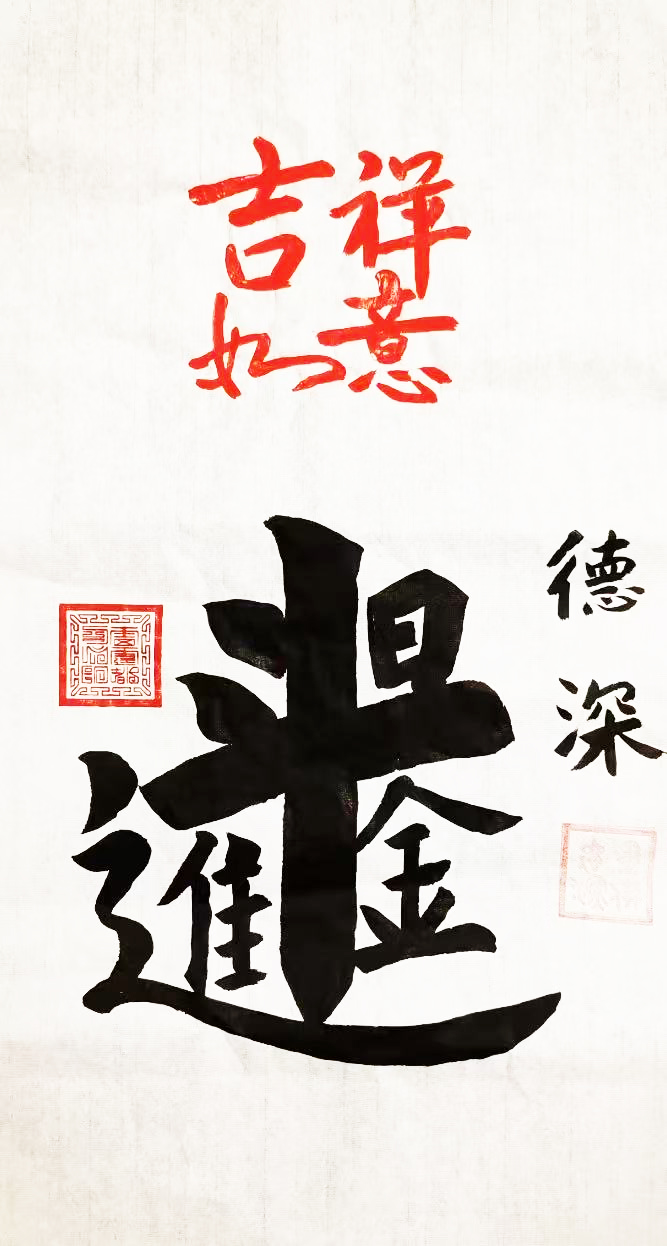 吉祥
如意
日進斗金
德深